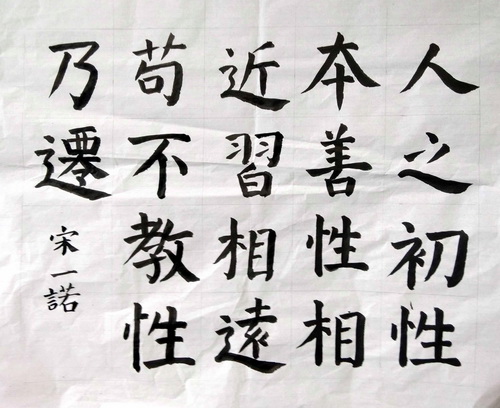 人之初性
本善性相
近習相遠
苟不教性
乃遷
宋一諾